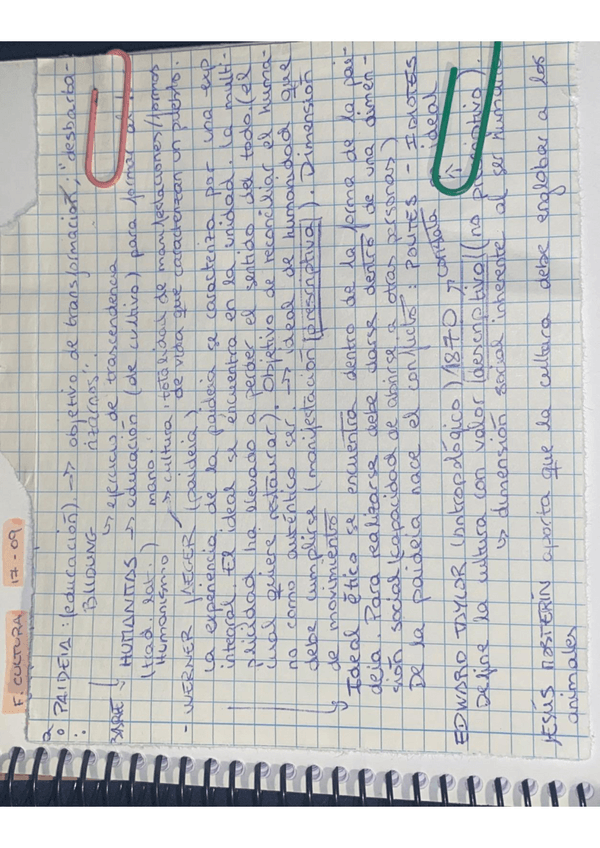 F. CULTURA 17-09
PAIDEIA: (educación). → objetivo de transformación, "desbarba-
rizarnos".
BILDUNG
↳ ejercicio de trascendencia
BASE HUMANITAS → educación (de cultivo) para formar al
(trad. lat.) mano:
Humanismo → cultura: totalidad de manifestaciones/formas
de vida que caracterizan un pueblo.
- WERNER JAEGER (paideia)
La experiencia de la paideia se caracteriza por una exp
integral. El ideal se encuentra en la unidad. La multi-
plicidad ha llevado a perder el sentido del todo (el
cual quiere restaurar). Objetivo de reconciliar el huma-
no como auténtico ser. → ideal de humanidad que
debe cumplirse (manifestación prescriptiva). Dimensión
de movimiento
Ideal ético se encuentra dentro de la forma de la pai-
deia. Para realizarse debe darse dentro de una dimen-
sión social (capacidad de abrirse a otras personas)
De la paideia nace el conflicto: POLITES - IDIOTES
constata ideal
EDWARD TAYLOR (antropológico) 1870
Define la cultura con valor descriptivo (no prescriptivo).
↳ dimensión social inherente al ser humano
JESÚS MOSTERÍN aporta que la cultura debe englobar a los
animales